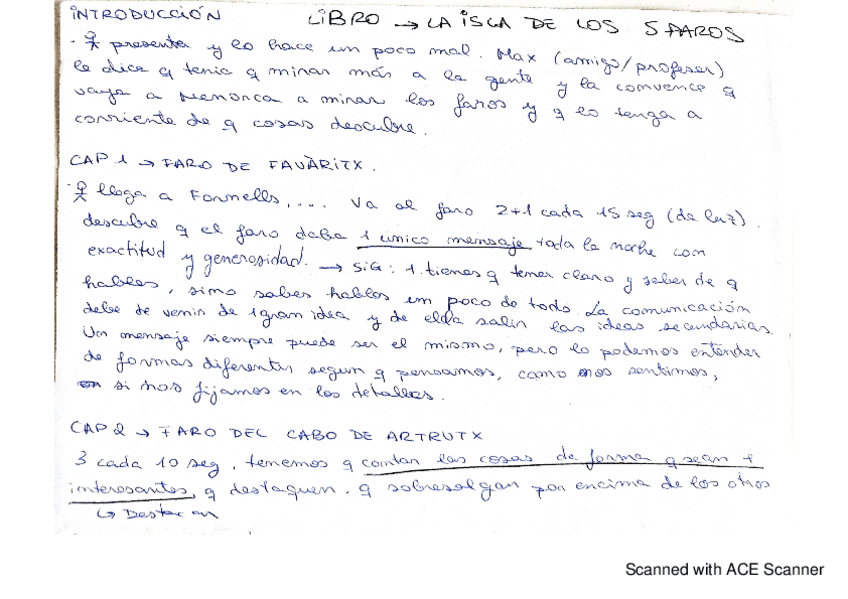 INTRODUCCIÓN LIBRO → LA ISLA DE LOS 5 FAROS
· ♀ presenta y lo hace un poco mal. Max (amigo/profesor)
le dice q tenia q mirar más a la gente y la convence q
vaya a Menorca a mirar los faros y q lo tenga a
corriente de q cosas descubre.
CAP 1 → FARO DE FAVÀRITX.
· ♀ llega a Fornells, .... Va al faro 2+1 cada 15 seg (de luz).
descubre q el faro daba 1 unico mensaje toda la noche con
exactitud y generosidad. → SIG: 1. tienes q tener claro y saber de q
hables, sino sabes hablas un poco de todo. La comunicación
debe de venir de 1 gran idea y de ella salir las ideas secundarias.
Un mensaje siempre puede ser el mismo, pero lo podemos entender
de formas diferentes segun q pensamos, como nos sentimos,
si nos fijamos en los detalles.
CAP 2 → FARO DEL CABO DE ARTRUTX
3 cada 10 seg, tenemos q contar las cosas de forma q sean +
interesantes, q destaquen. q sobresalgan por encima de los otros
↳ Destacar
Scanned with ACE Scanner